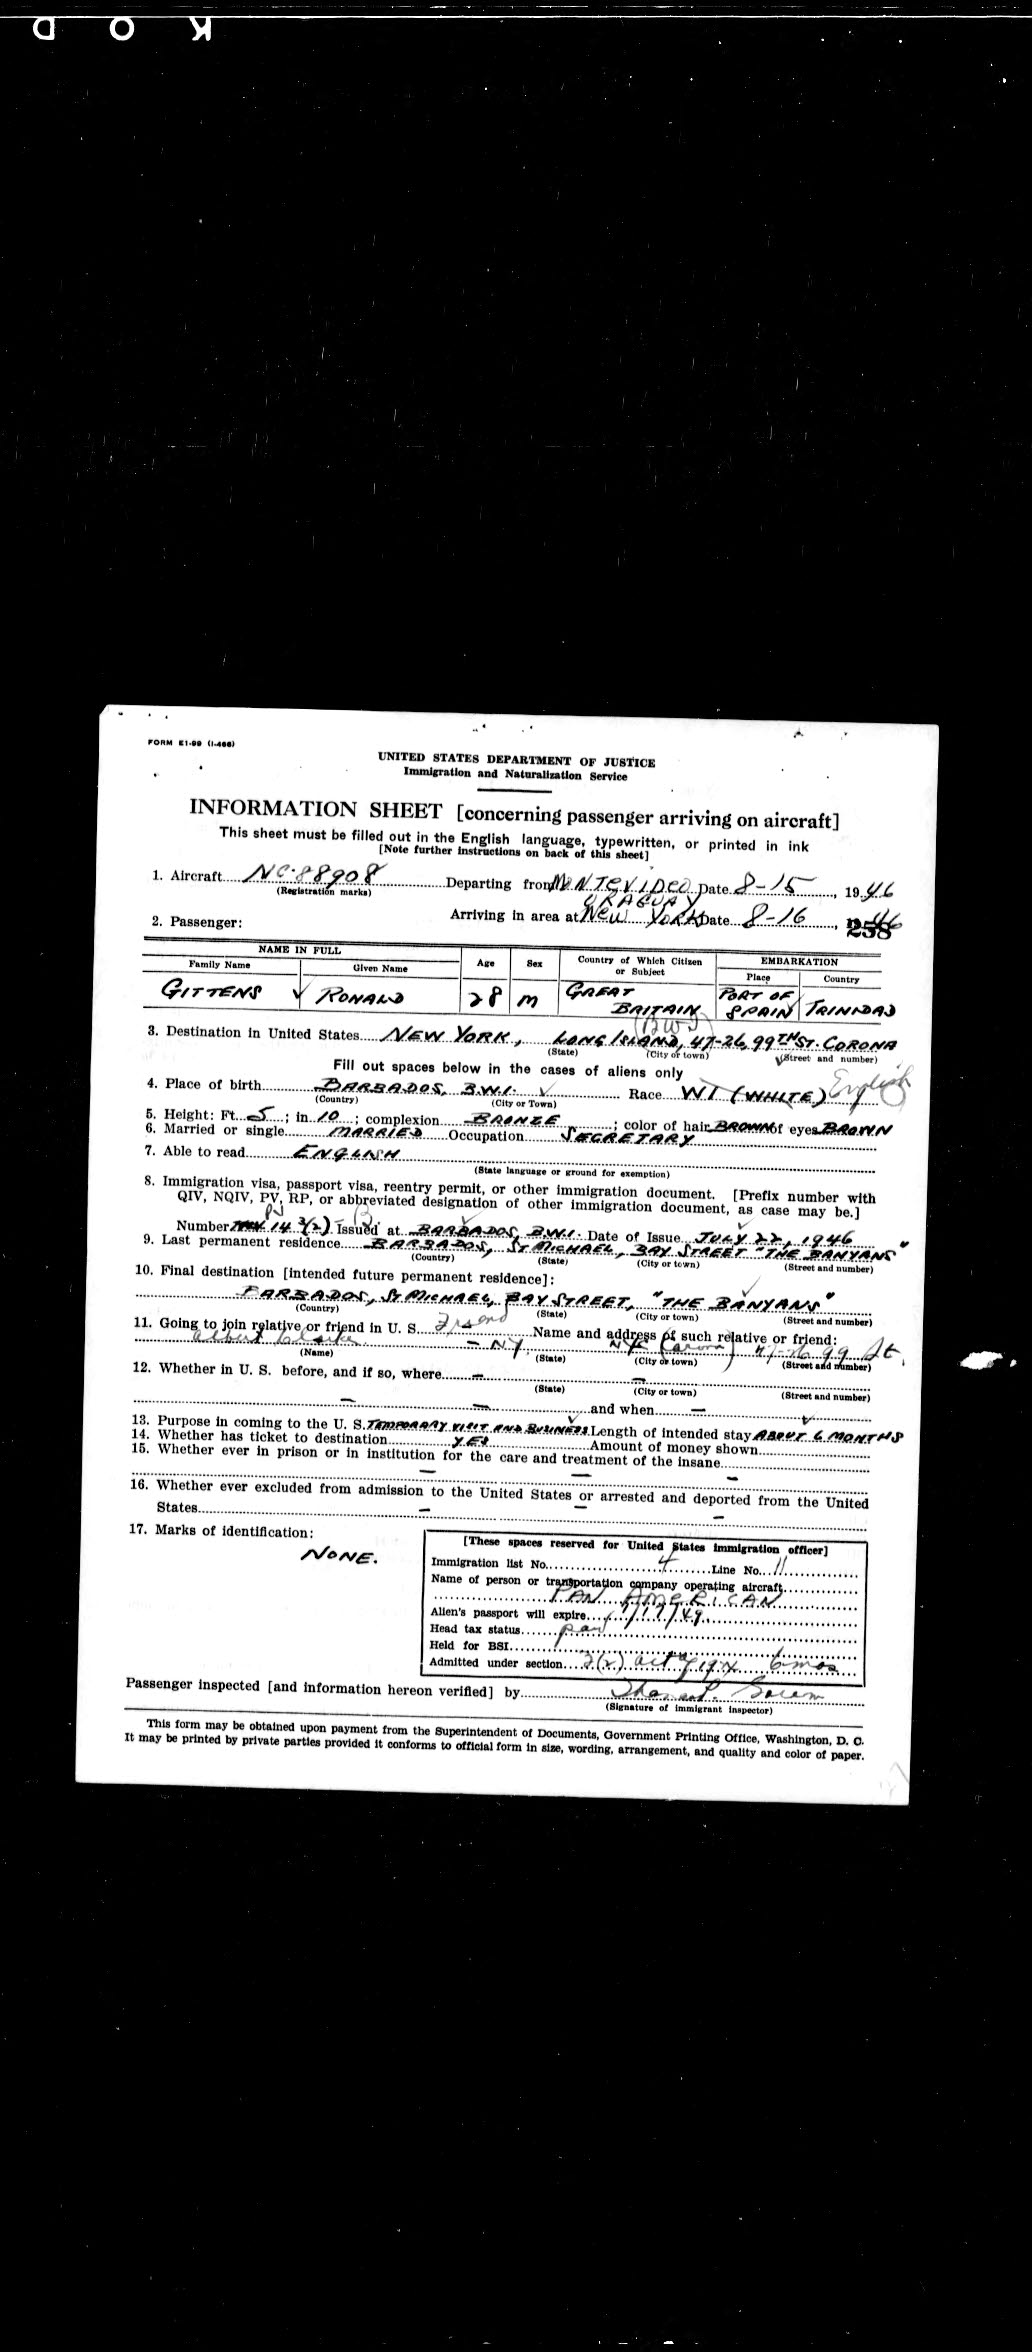 K O D
FORM E1-99 (I-466)
UNITED STATES DEPARTMENT OF JUSTICE
Immigration and Naturalization Service
INFORMATION SHEET [concerning passenger arriving on aircraft]
This sheet must be filled out in the English language, typewritten, or printed in ink
[Note further instructions on back of this sheet]
1. Aircraft NC-88908 Departing from MONTEVIDEO URAGUAY Date 8-15, 1946
(Registration marks)
Arriving in area at New York Date 8-16, 46
258
2. Passenger:
NAME IN FULL Age Sex Country of Which Citizen or Subject EMBARKATION
Family Name Given Name Place Country
GITTENS RONALD 28 M GREAT BRITAIN PORT OF SPAIN TRINIDAD
(BWI)
3. Destination in United States NEW YORK, LONG ISLAND, 47-26, 99TH ST. CORONA
(State) (City or town) (Street and number)
Fill out spaces below in the cases of aliens only
4. Place of birth BARBADOS, B.W.I. Race WI (WHITE) English
(Country) (City or Town)
5. Height: Ft. 5; in 10; complexion BRONZE; color of hair BROWN of eyes BROWN
6. Married or single MARRIED Occupation SECRETARY
7. Able to read ENGLISH
(State language or ground for exemption)
8. Immigration visa, passport visa, reentry permit, or other immigration document. [Prefix number with
QIV, NQIV, PV, RP, or abbreviated designation of other immigration document, as case may be.]
Number PV 14 3(2) - B Issued at BARBADOS, B.W.I. Date of Issue JULY 22, 1946
9. Last permanent residence BARBADOS, ST MICHAEL, BAY STREET "THE BANYANS"
(Country) (State) (City or town) (Street and number)
10. Final destination [intended future permanent residence]:
BARBADOS, ST MICHAEL, BAY STREET, "THE BANYANS"
(Country) (State) (City or town) (Street and number)
11. Going to join relative or friend in U. S. Friend Name and address of such relative or friend:
Albert Clarke - NY NY (Corona) 47-26 99 St.
(Name) (State) (City or town) (Street and number)
12. Whether in U. S. before, and if so, where - -
(State) (City or town) (Street and number)
- - and when -
13. Purpose in coming to the U. S. TEMPORARY VISIT AND BUSINESS Length of intended stay ABOUT 6 MONTHS
14. Whether has ticket to destination YES Amount of money shown
15. Whether ever in prison or in institution for the care and treatment of the insane
- - -
16. Whether ever excluded from admission to the United States or arrested and deported from the United
States - - -
17. Marks of identification:
NONE.
[These spaces reserved for United States immigration officer]
Immigration list No. 4 Line No. 11
Name of person or transportation company operating aircraft
PAN AMERICAN
Alien's passport will expire /17/49
Head tax status
Held for BSI
Admitted under section 3(2) Act of 1924 6 mos
Passenger inspected [and information hereon verified] by
(Signature of immigrant inspector)
This form may be obtained upon payment from the Superintendent of Documents, Government Printing Office, Washington, D. C.
It may be printed by private parties provided it conforms to official form in size, wording, arrangement, and quality and color of paper.